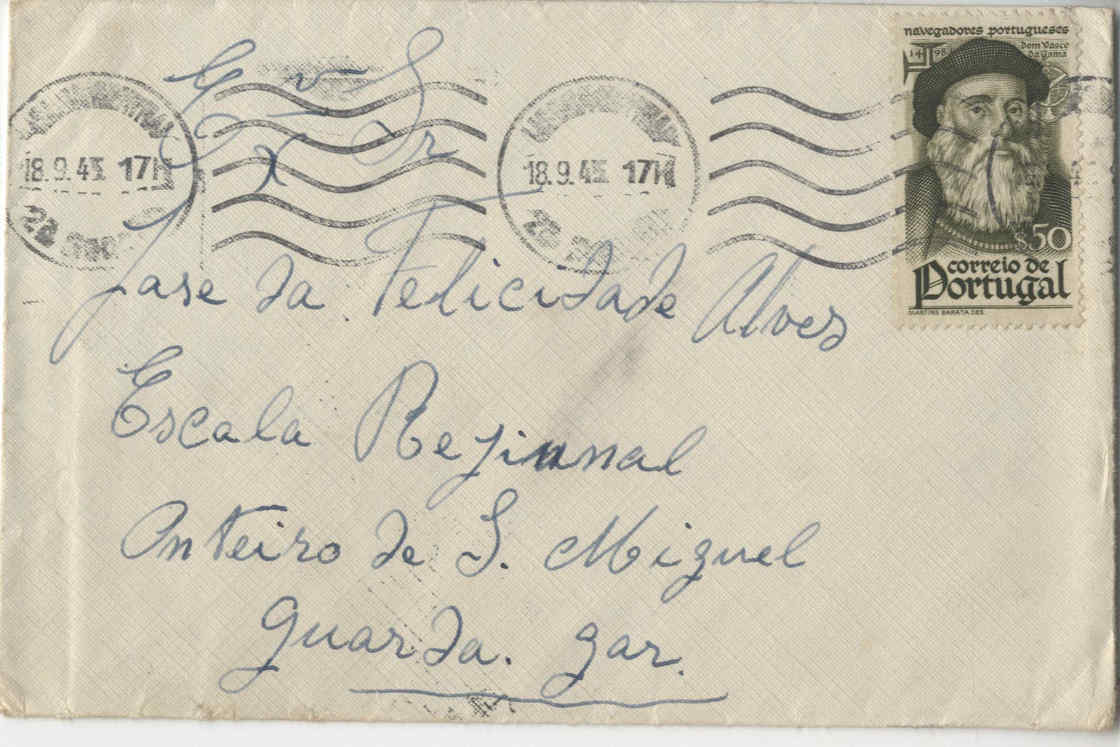 navegadores portugueses
14 98
Dom Vasco
da Gama
$50
correio de
Portugal
MARTINS BARATA DES.
18.9.45 17H
18.9.45 17H
Ex Sr
Jose da Felicidade Alves
Escala Rejiunal
Onteiro de S. Miguel
Guarda. gar.